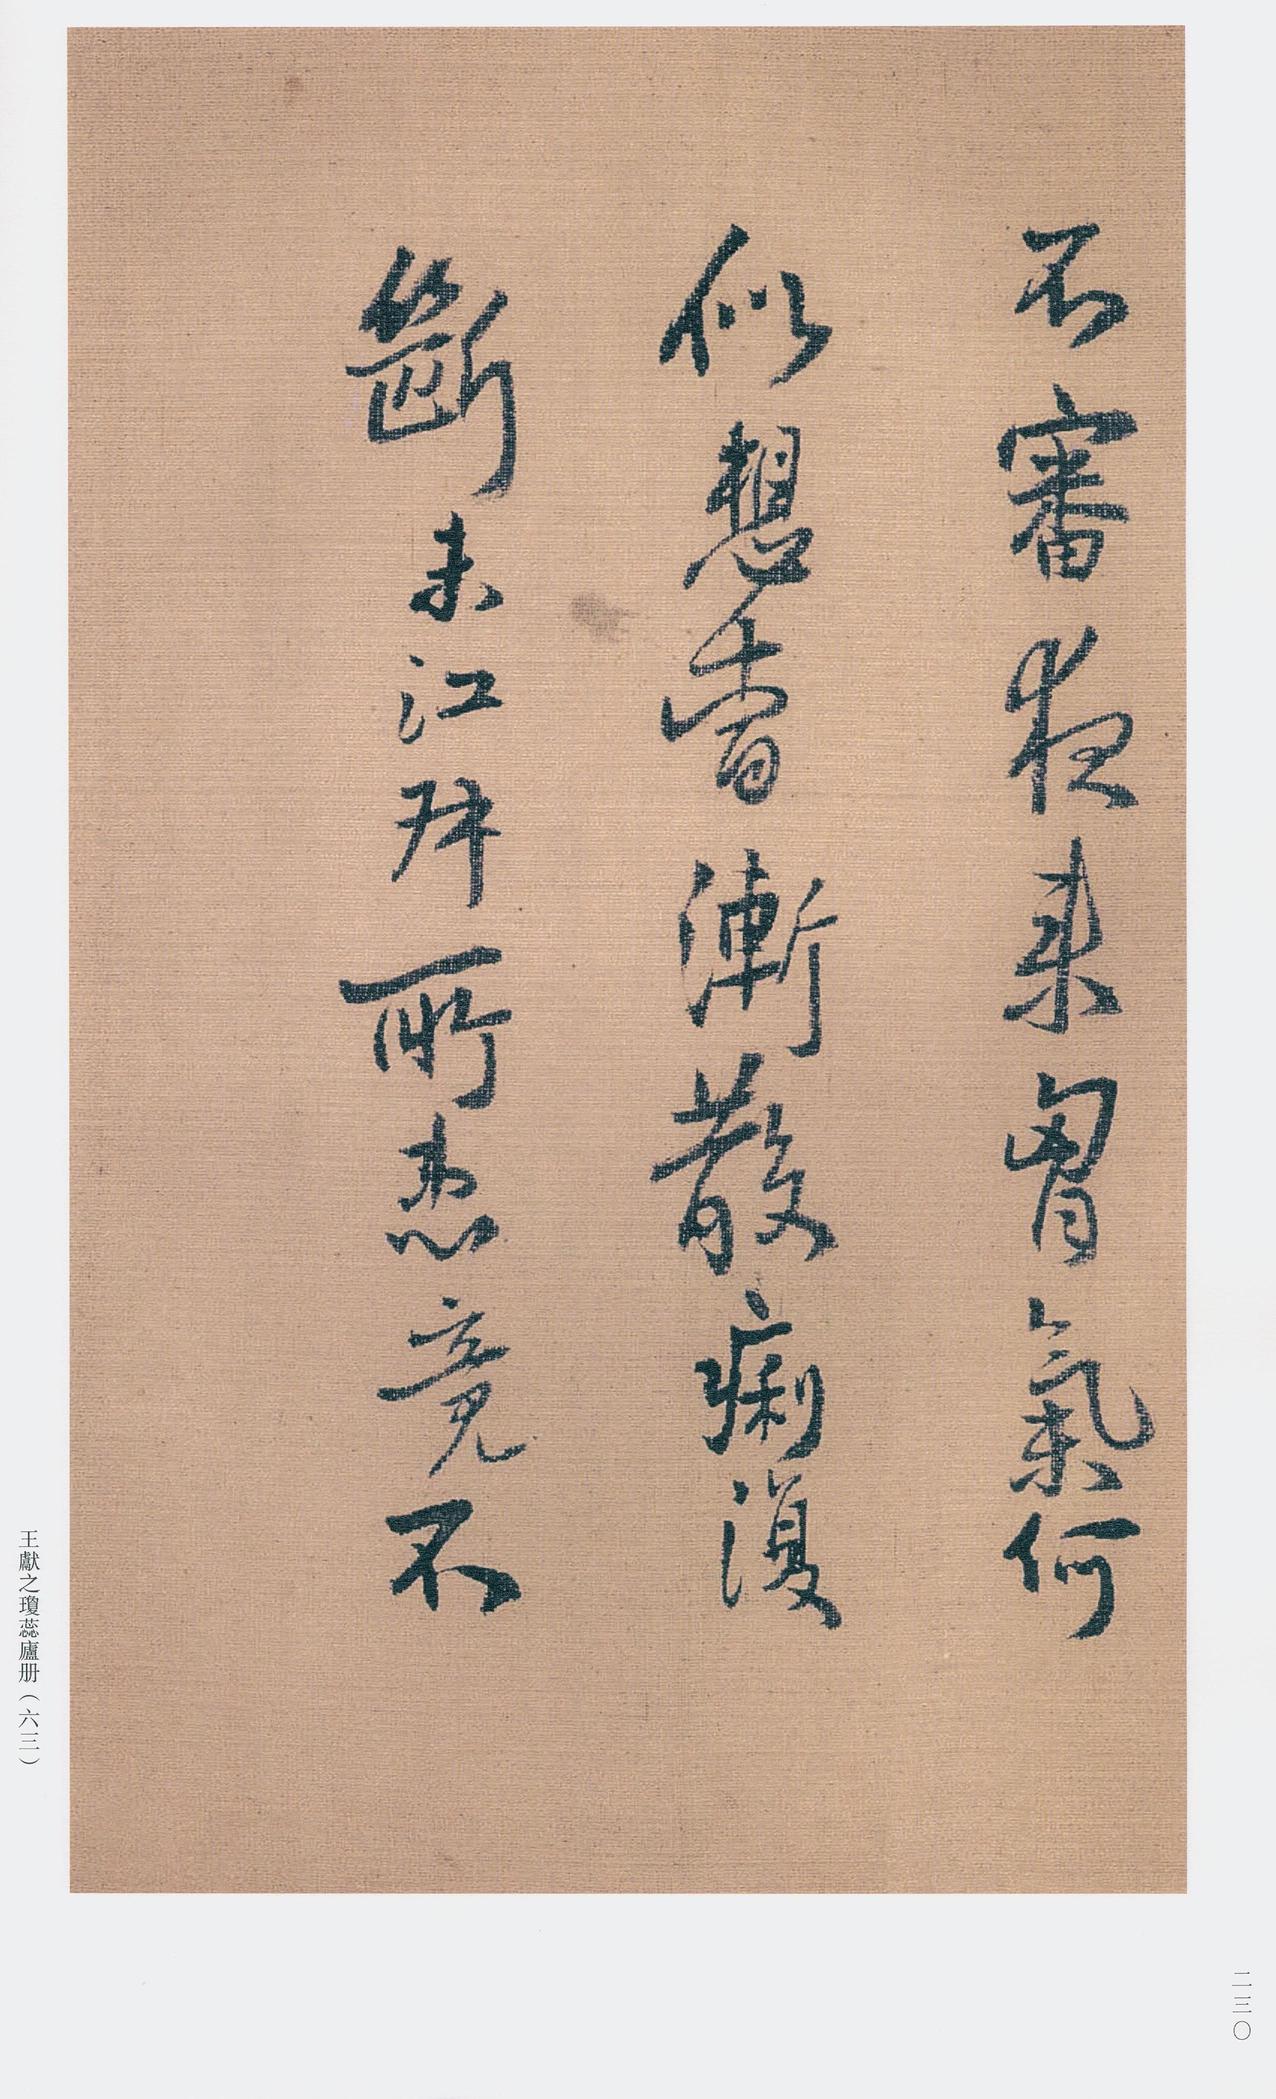 不審夜來胷氣何
似想當漸散痢復
斷未江
所患竟不
王獻之瓊蕊廬册（六三）
二三〇